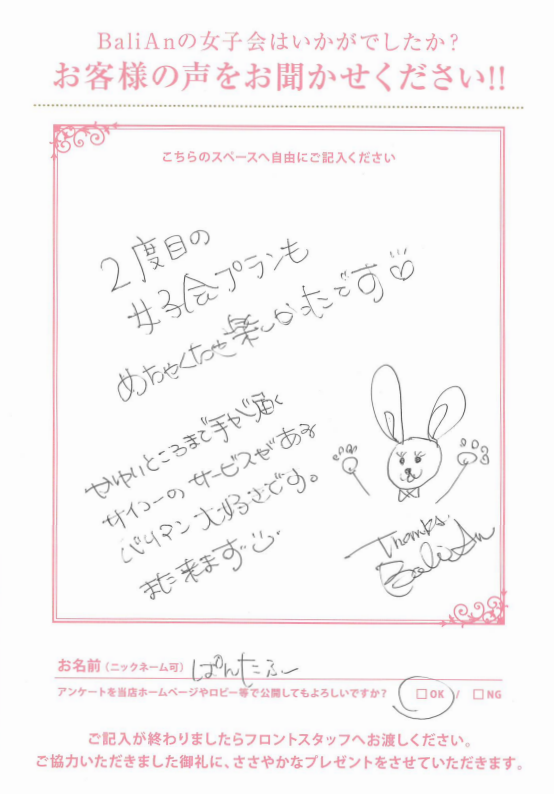 BaliAnの女子会はいかがでしたか？
お客様の声をお聞かせください!!
こちらのスペースへ自由にご記入ください
2度目の
女子会プランも
めちゃくちゃ楽しかったです♡
かゆいところまで手が届く
サイコーのサービスがある
バリアン大好きです。
また来ます
Thanks.
BaliAn
お名前（ニックネーム可） ぱんたふー
アンケートを当店ホームページやロビー等で公開してもよろしいですか？ □OK / □NG
ご記入が終わりましたらフロントスタッフへお渡しください。
ご協力いただきました御礼に、ささやかなプレゼントをさせていただきます。